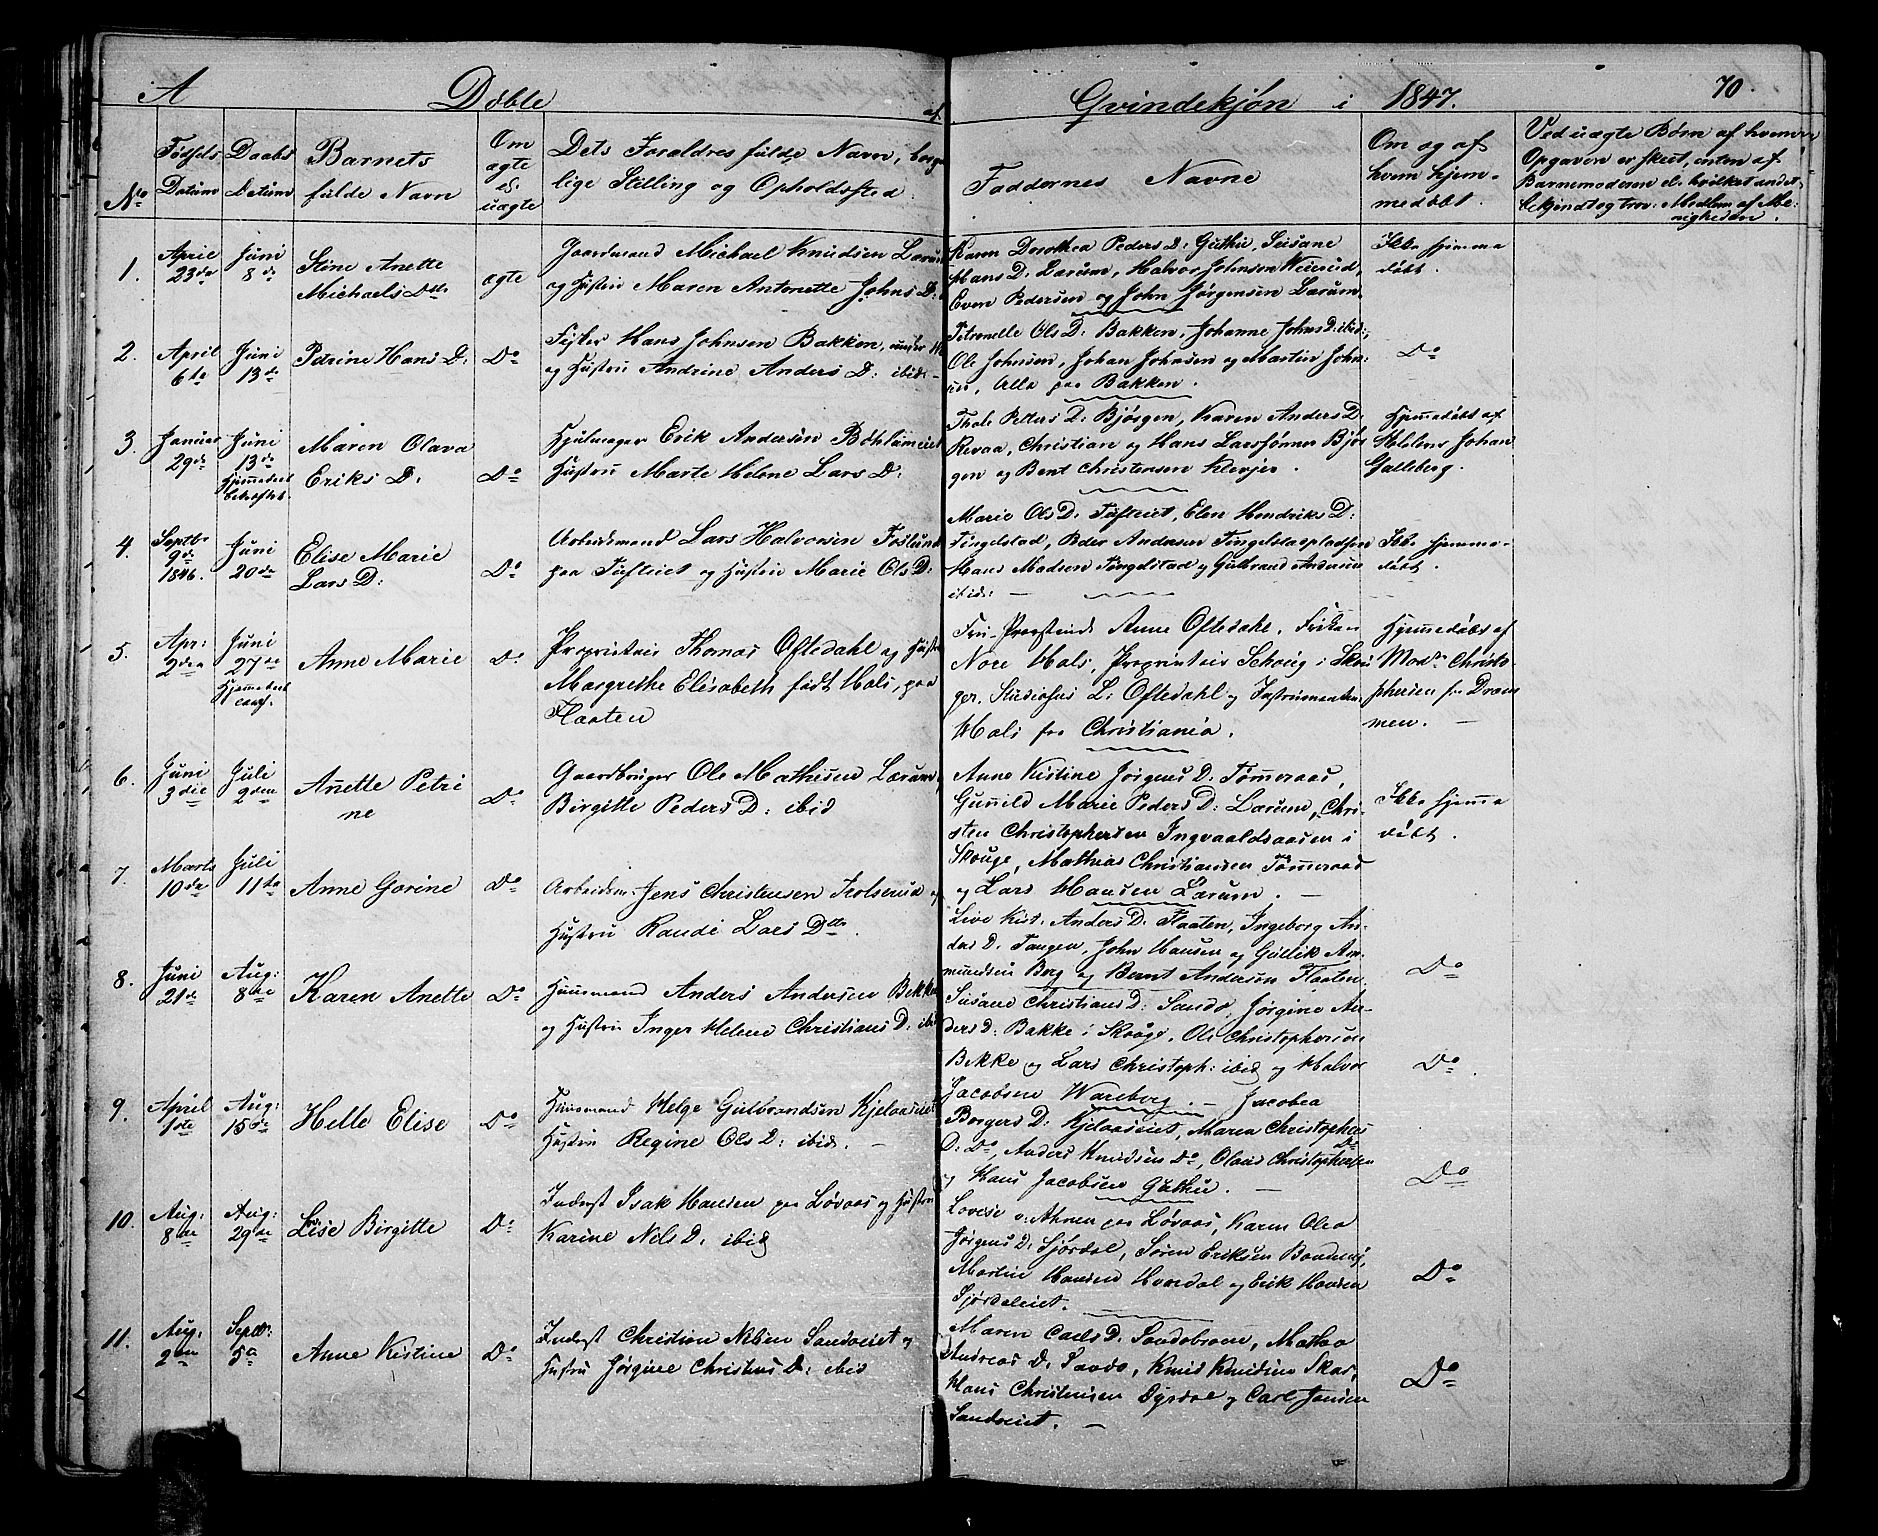 A Døbte af Qvindekjøn i 1847. 70.
No
Fødsels Datum
Daabs Datum
Barnets fulde Navn
Om ægte el. uægte
Dets Forældres fulde Navn, borgerlige Stilling og Opholdssted
Faddernes Navne
Om og af hvem hjemmedøbt.
Ved uægte Børn af hvem Opgaven er skeet, enten af Barnemoderen el. hvilket andet bekjendt og trov: Medlem af Menigheden.
1. April 23de Juni 8de
Stine Anette
Michaels Dtt.
ægte
Gaardmand Michael Knudsen Lærum
og Hustru Maren Antonette Johns D:
Karen Dorothea Peders D: Guthu, Susane
Hans D: Lærum, Halvor Johnsen Weierud,
Even Pedersen og John Jørgensen Lærum.
Ikke hjemme
døbt.
2. April 6te Juni 13de
Petrine Hans D:
Do
Hans Johnsen Bakken, under
og Hustru Andrine Anders D: ibid
Petronelle Ols D: Bakken, Johanne Johns D: ibid:,
Ole Johnsen, Johan Johnsen og Martin John-
sen, Alle paa Bakken.
Do
3. Januar 29de Juni 13de
Hjemmedaab
bekræftet.
Maren Olava
Eriks D:
Do
Hjulmager Erik Andersen
Hustru Marte Helene Lars D:
Petters D: Bjørgen, Karen Anders D:
Revaa, Christian og Hans Larssønner Bjør
gen og Bent Christensen Klevjer.
Hjemmedøbt af
Johan
Galleberg.
4. Septbr 9de 1846. Juni 20de
Elise Marie
Lars D:
Do
Arbeidsmand Lars Halvorsen
paa Tufteiet og Hustru Marie Ols D:
Marie Ols D: Tufteiet, Elen Hendriks D:
Tingelstad, Peder Andersen Tingelstadpladsen
Hans Madsen Tingelstad og Gulbrand Andersen
ibid:
Ikke hjemme-
døbt.
5. Apr: 2den Juni 27de
Anne Marie
Do
Proprietair Thomas Oftedahl og Hustru
Margrethe Elisabeth født Hals, paa
Flaaten
Fru Provstinde Anne Oftedahl, Frøken
Nore Hals, Proprietair Schoug i Skou
ger, Studiosus L: Oftedahl og Instrumentm.
Hals fra Christiania.
Hjemmedøbt af
Mad. Christo-
phersen fra Dram
men.
6. Juni 3die Juli 2den
Anette Petri
ne
Do
Gaardbruger Ole Mathisen Lærum,
Birgitte Peders D: ibid
Anne Kistine Jørgens D: Tømeraas,
Gunild Marie Peders D: Lærum, Chri-
sten Christophersen Ingvaaldsaasen i
Skouge, Mathias Christiansen Tømeraas
og Lars Hansen Lærum.
Ikke hjemme
døbt.
7. Marts 10de Juli 11te
Anne Gorine
Do
Arbeidsm. Jens Christensen Trolsrud og
Hustru Randi Lars Dtt.
Live Kist. Anders D: Flaaten, Ingeborg An-
ders D. Tangen, John Hansen og Gullik Am-
mundsen Berg og Bernt Andersen Flaaten.
Do
8. Juni 21de Aug: 8de
Karen Anette
Do
Huusmand Anders Andersen Bekke
og Hustru Inger Helene Christians D: ibid
Susane Christians D: Sando, Jørgine An-
ders D: Bakke i Skouge, Ole Christophersen
Bekke og Lars Christoph: ibid og Halvor
Jacobsen Wareberg.
Do
9. April 1ste Aug: 15de
Helle Elise
Do
Huusmand Helge Gulbrandsen Kjelaaseiet
Hustru Regine Ols D: ibid.
Jacobea
Borgers D: Kjelaaseiet, Maren Christophers
D: Do, Anders Knudsen Do, Olaus Christophersen Do
og Hans Jacobsen Guthu.
Do
10. Aug: 8de Aug: 29de
Lise Birgitte
Do
Inderst Isak Hansen paa Løvaas og Hustru
Karine Nils D. ibid
Lovise v: Ahnen paa Løvaas, Karen Olea
Jørgens D. Fjørdal, Søren Eriksen
Martin Hansen Hvardal og Erik Hansen
Do
11. Aug: 2den Septb: 5te
Anne Kistine
Do
Inderst Christian Nilsen Sandveiet og
Hustru Jørgine Christens D: ibid
Maren Carls D: Sandobraaten, Mathea
Andreas D. Sando, Knud Knudsen
Hans Christensen Dyrdal og Carl Jensen
Sandveiet.
Do